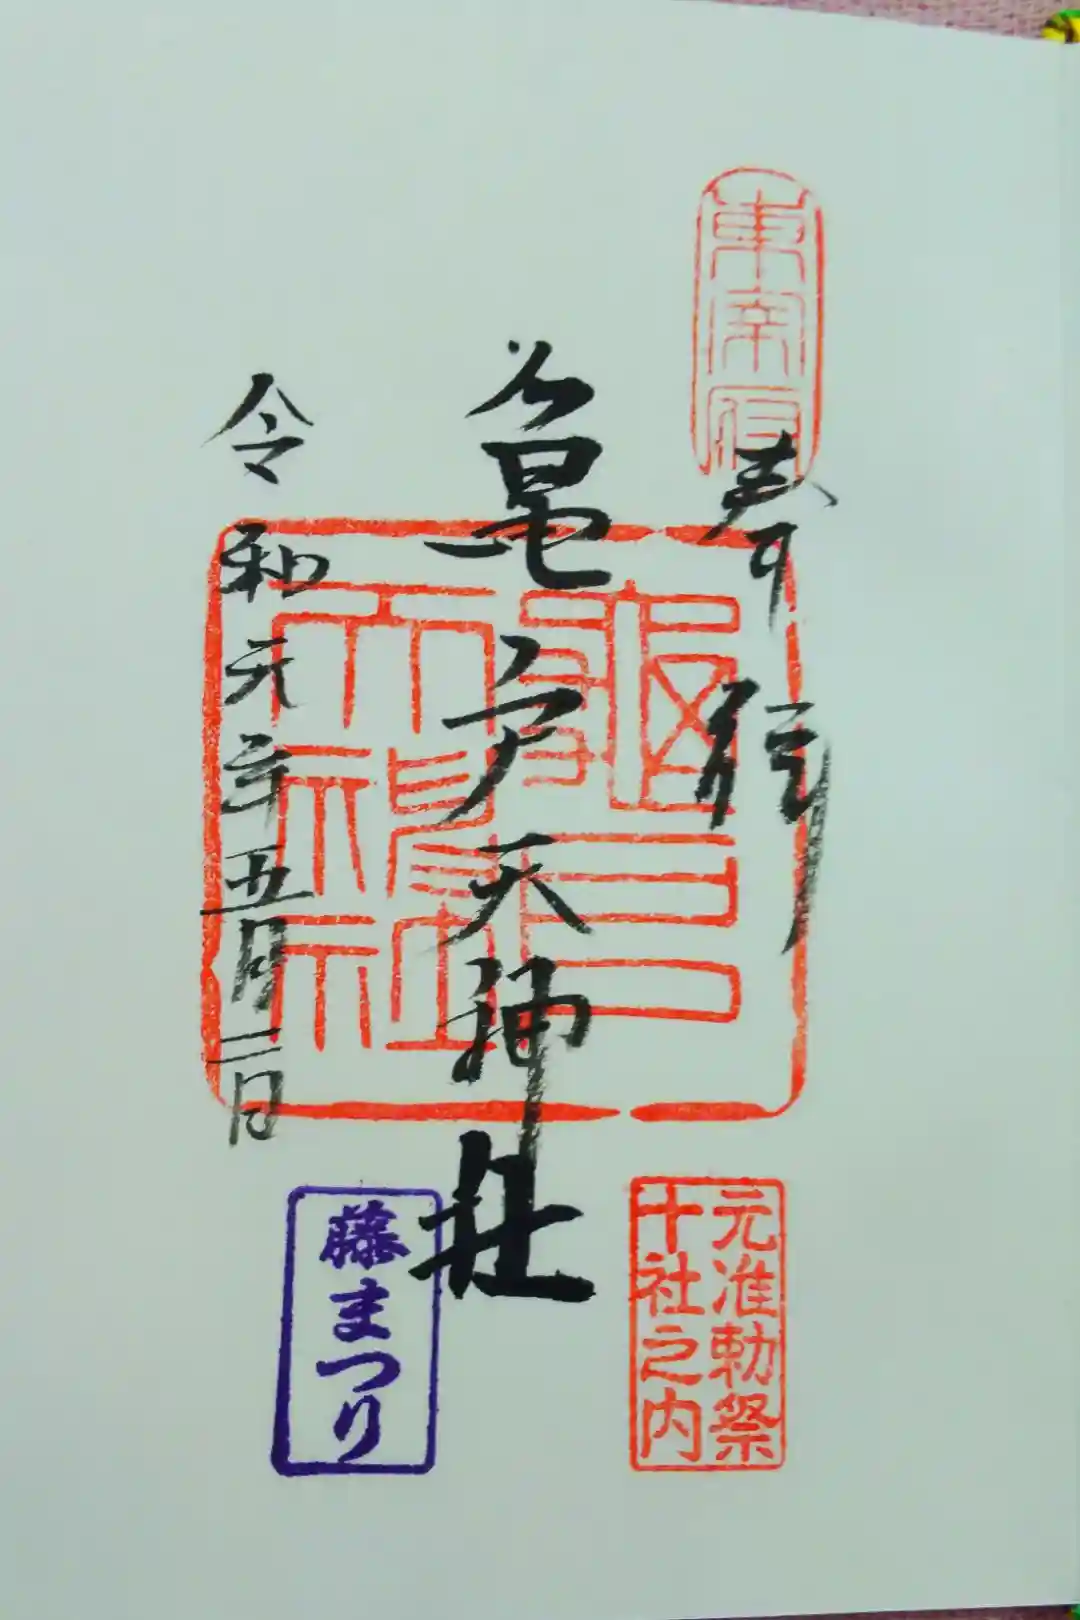 東宰府
奉拝
亀戸天神社
亀戸
天神社
令和元年五月三日
元准勅祭
十社之内
藤まつり